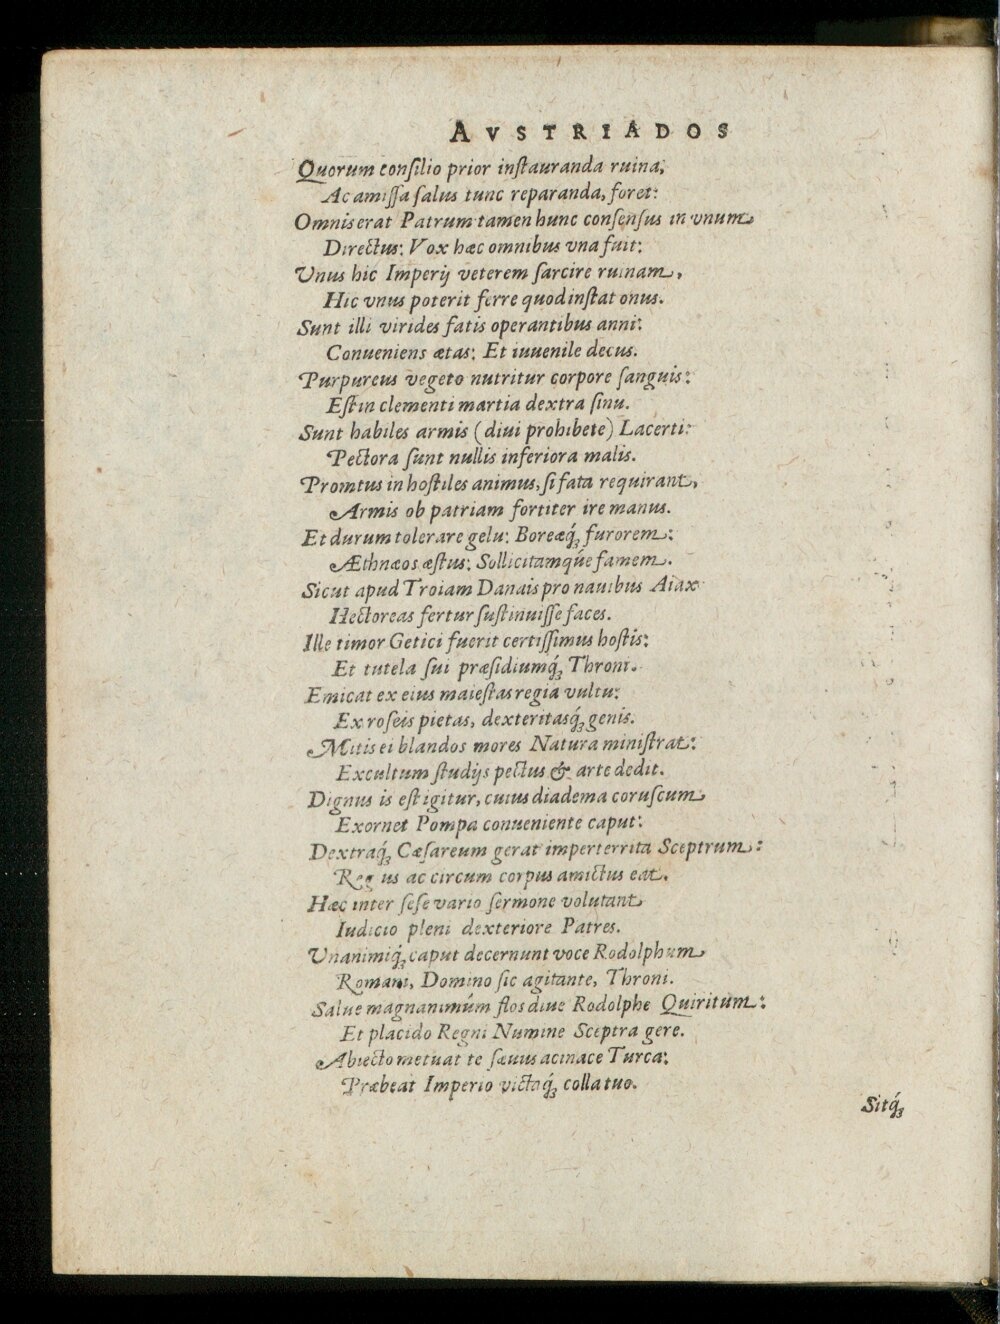 AVSTRIADOS
Quorum conſilio prior inſtauranda ruina,
Ac amiſſa ſalus tunc reparanda, foret:
Omnis erat Patrum tamen hunc conſenſus in vnum
Directus: Vox hæc omnibus vna fuit:
Unus hic Imperij veterem ſarcire ruinam,
Hic vnus poterit ferre quod inſtat onus.
Sunt illi virides fatis operantibus anni:
Conueniens ætas: Et iuuenile decus.
Purpureus vegeto nutritur corpore ſanguis:
Eſt in clementi martia dextra ſinu.
Sunt habiles armis (diui prohibete) Lacerti:
Pectora ſunt nullis inferiora malis.
Promtus in hoſtiles animus, ſi fata requirant,
Armis ob patriam fortiter ire manus.
Et durum tolerare gelu: Boreæq́ꝫ furorem:
Æthnæos æſtus: Sollicitamq́ue famem.
Sicut apud Troiam Danais pro nauibus Aiax
Hectoreas fertur ſuſtinuiſſe faces.
Ille timor Getici fuerit certiſſimus hoſtis:
Et tutela ſui præſidiumq́ꝫ Throni.
Emicat ex eius maieſtas regia vultu:
Ex roſeis pietas, dexteritasq́ꝫ genis.
Mitis ei blandos mores Natura miniſtrat:
Excultum ſtudijs pectus & arte dedit.
Dignus is eſt igitur, cuius diadema coruſcum
Exornet Pompa conueniente caput:
Dextraq́ꝫ Cæſareum gerat imperterrita Sceptrum:
Reg us ac circum corpus amictus eat.
Hæc inter ſeſe vario ſermone volutant
Iudicio pleni dexteriore Patres.
Unanimiq́ꝫ caput decernunt voce Rodolphum
Romani, Domino ſic agitante, Throni.
Salue magnanimúm flos diue Rodolphe Quiritum:
Et placido Regni Numine Sceptra gere.
Abiecto metuat te ſæuus acinace Turca:
Præbeat Imperio victaq́ꝫ colla tuo.
Sitq́ꝫ